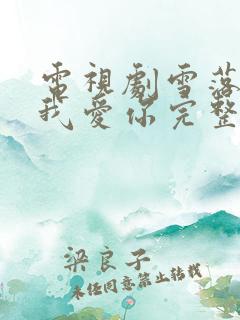 電視劇雪落
我愛你完整
梁良子
未經同意禁止轉載